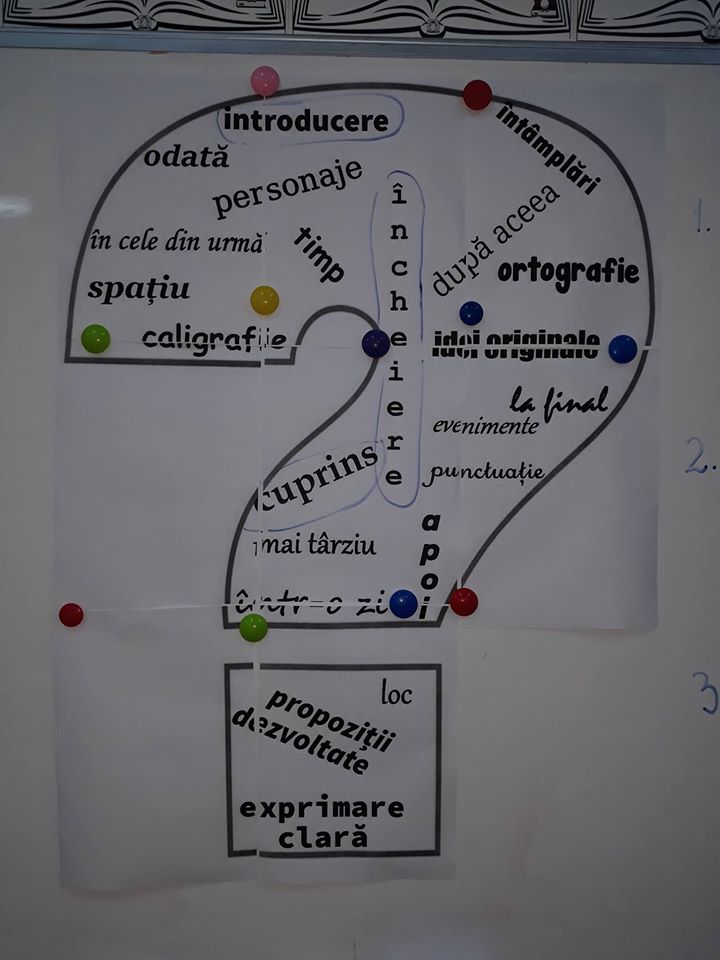 introducere
odată
personaje
întâmplări
în cele din urmă
timp
încheiere
după aceea
ortografie
spațiu
caligrafie
idei originale
la final
evenimente
cuprins
punctuație
mai târziu
apoi
într-o zi
loc
propoziții
dezvoltate
exprimare
clară
1.
2.
3